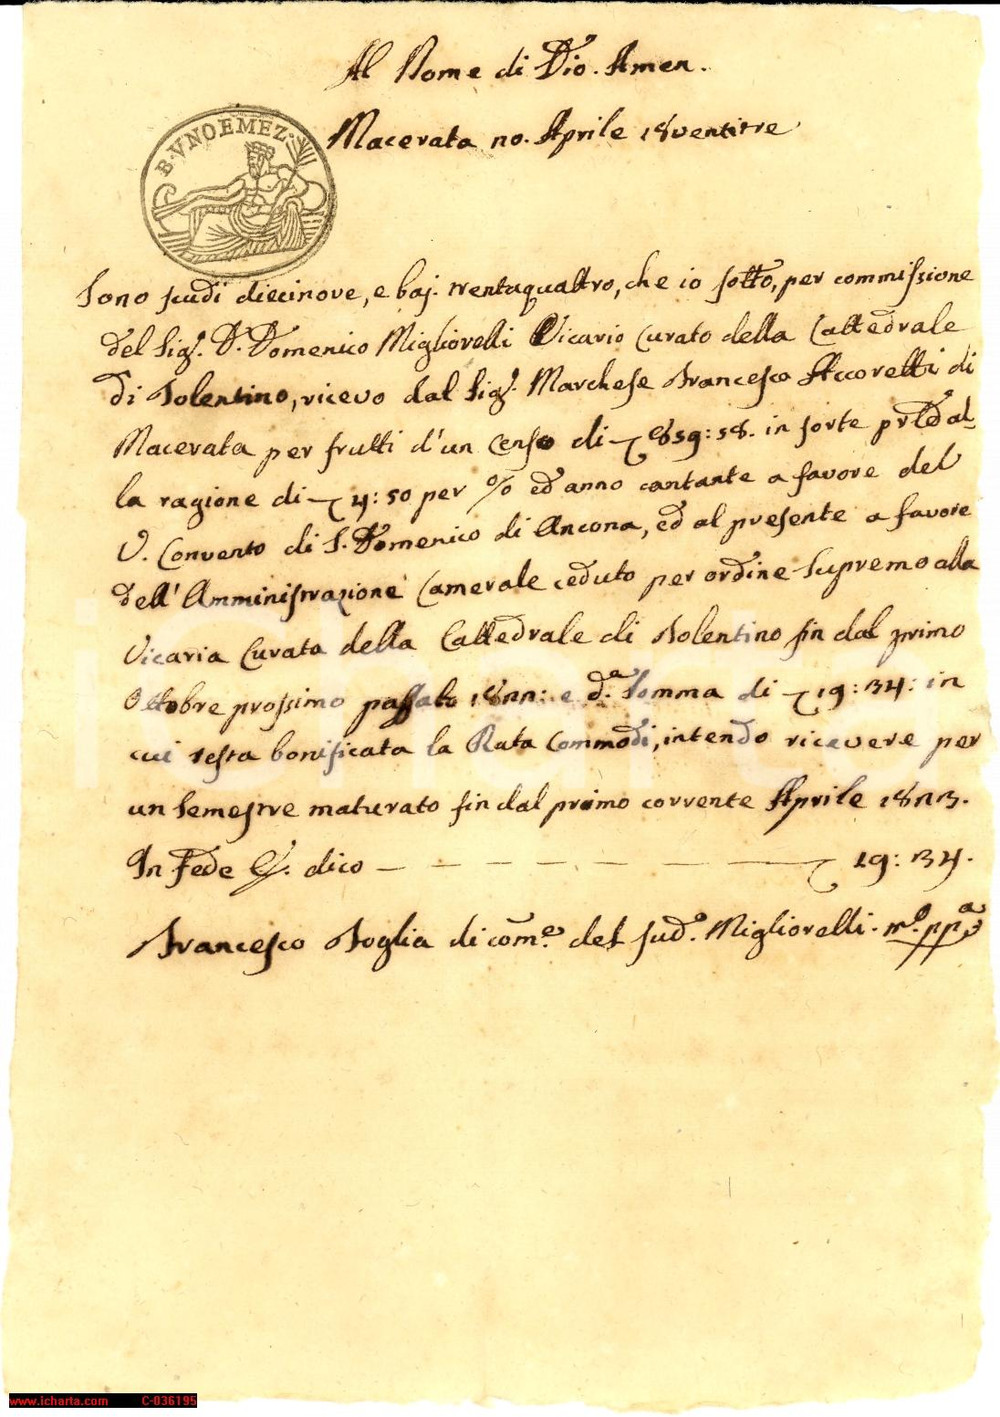 Al Nome di Dio. Amen.
B. VNOEMEZ.
Macerata 20. Aprile 18ventitre
Sono scudi diecinove, e baj. trentaquattro, che io sotto, per commissione
del Sig.r D. Domenico Migliorelli Vicario Curato della Cattedrale
di Tolentino, ricevo dal Sig.r Marchese Francesco Accorretti di
Macerata per frutti d'un Censo di 859:58. in sorte prle ed al
la ragione di 4:50 per % ed anno cantante a favore del
V. Convento di S. Domenico di Ancona, ed al presente a favore
dell'Amministrazione Camerale ceduto per ordine Supremo alla
Vicaria Curata della Cattedrale di Tolentino fin dal primo
Ottobre prossimo passato 1822: e d.a Somma di 19:34: in
cui resta bonificata la Rata Commodi, intendo ricevere per
un Semestre maturato fin dal primo corrente Aprile 1823.
In Fede &. dico 19:34.
Francesco Foglia di com.e del sud.o Migliorelli. m.o pp.a
www.icharta.com C-036195